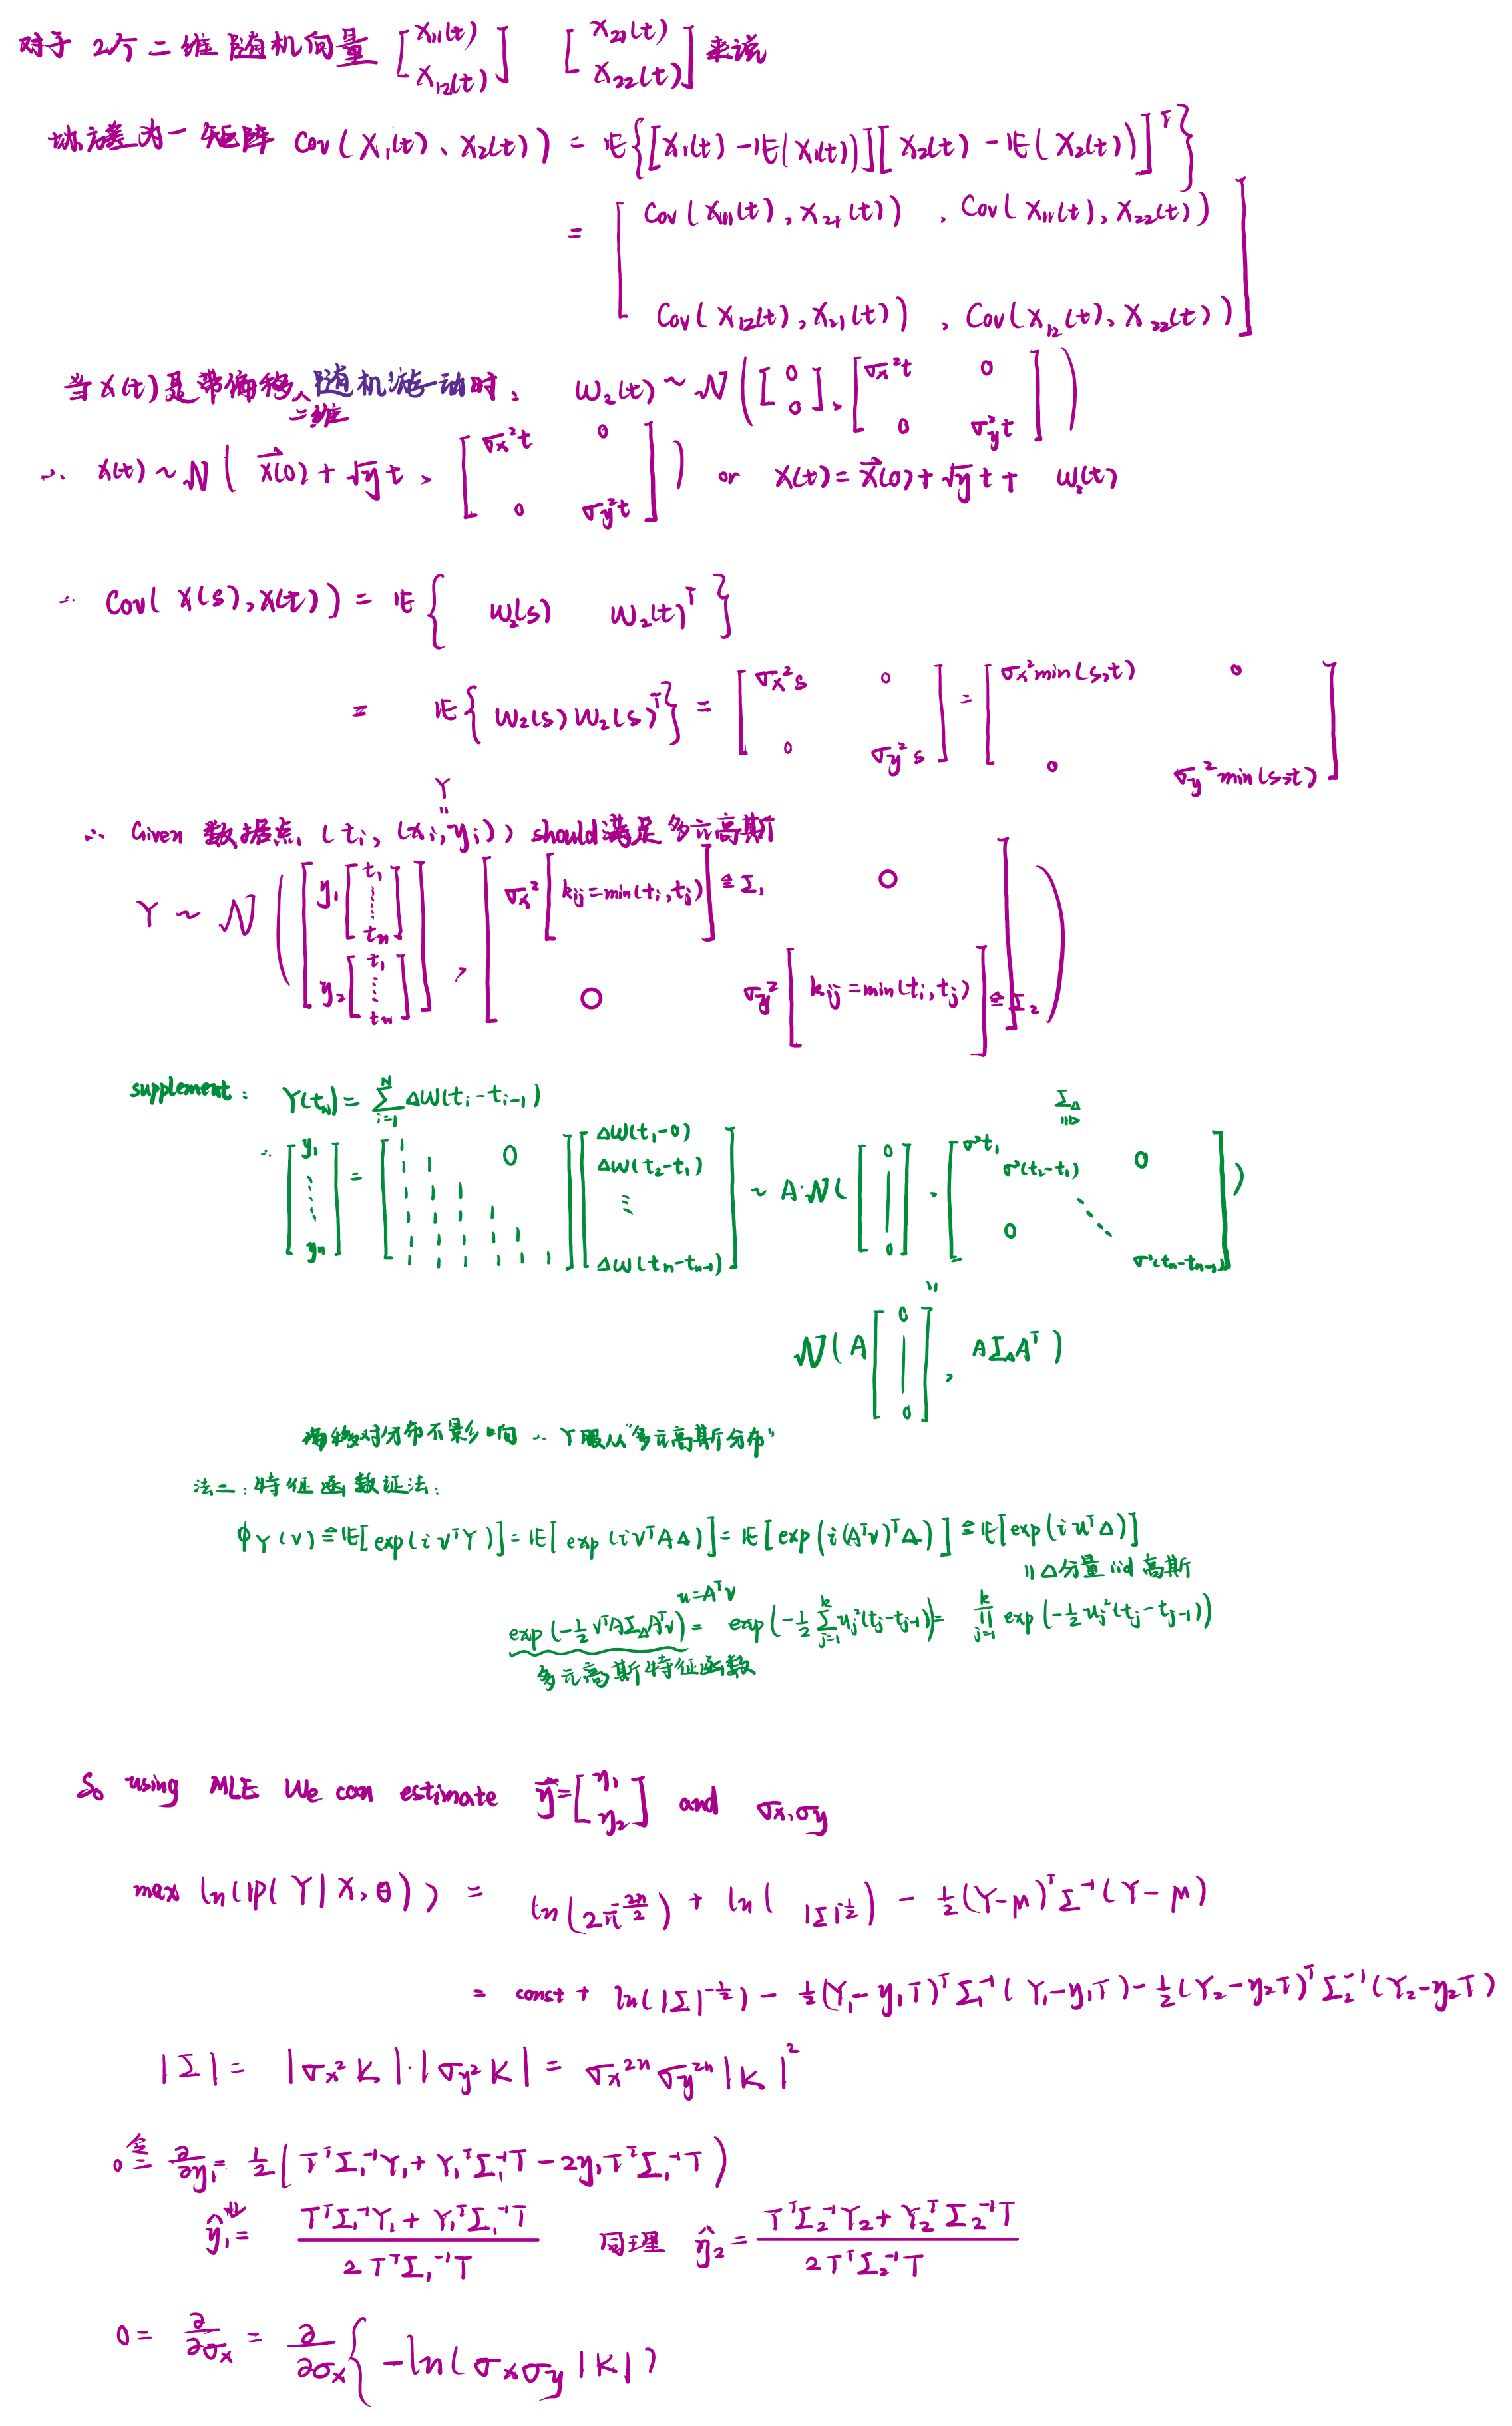 对于 2个二维随机向量 [x₁₁(t) x₁₂(t)] [x₂₁(t) x₂₂(t)] 来说
协方差为一矩阵 Cov(X₁(t)、X₂(t)) = E{[X₁(t) - E(X₁(t))][X₂(t) - E(X₂(t))]ᵀ}
= [Cov(X₁₁(t), X₂₁(t)), Cov(X₁₁(t), X₂₂(t))
Cov(X₁₂(t), X₂₁(t)), Cov(X₁₂(t), X₂₂(t))]
当X(t)是带偏移二维随机游动时, W₂(t) ~ N([0 0], [σx²t 0 0 σy²t])
∴ X(t) ~ N(X⃗(0) + √y t, [σx²t 0 0 σy²t]) or X(t) = X⃗(0) + √y t + W₂(t)
∴ Cov(X(s), X(t)) = E{ W₂(s) W₂(t)ᵀ }
= E{W₂(s) W₂(s)ᵀ} = [σx²s 0 0 σy²s] = [σx²min(s,t) 0 0 σy²min(s,t)]
Y
∴ Given 数据点 (tᵢ, (xᵢ, yᵢ)) should满足多元高斯
Y ~ N([y₁[t₁ ⋮ tₙ] y₂[t₁ ⋮ tₙ]], [σx²[kᵢⱼ = min(tᵢ, tⱼ)] ≜ Σ₁ 0 0 σy²[kᵢⱼ = min(tᵢ, tⱼ)] ≜ Σ₂])
supplement: Y(t_N) = Σᵢ₌₁ᴺ ΔW(tᵢ - tᵢ₋₁)
∴ [y₁ ⋮ yₙ] = [1 0 ⋯ 1 1] [ΔW(t₁-0) ΔW(t₂-t₁) ⋮ ΔW(tₙ-tₙ₋₁)] ~ A·N([0 | 0], [σ²t₁ σ²(t₂-t₁) 0 0 ⋱ σ²(tₙ-tₙ₋₁)] = Σ_Δ)
N(A[0 | 0], AΣ_ΔAᵀ)
偏移对分布不影响 ∴ Y服从"多元高斯分布"
法二: 特征函数证法:
ϕ_Y(v) ≜ E[exp(i vᵀY)] = E[exp(i vᵀAΔ)] = E[exp(i(Aᵀv)ᵀΔ)] ≜ E[exp(i uᵀΔ)]
u = Aᵀv
|| Δ分量 iid 高斯
exp(-½ vᵀAΣ_ΔAᵀv) = exp(-½ Σⱼ₌₁ᵏ uⱼ²(tⱼ-tⱼ₋₁)) = ∏ⱼ₌₁ᵏ exp(-½ uⱼ²(tⱼ-tⱼ₋₁))
多元高斯特征函数
So using MLE We can estimate y⃗ = [η₁ η₂] and σx, σy
max ln(P(Y|X, θ)) = ln(2π^(2n/2)) + ln(|Σ|^½) - ½(Y-μ)ᵀΣ⁻¹(Y-μ)
= const + ln(|Σ|^-½) - ½(Y₁-y₁T)ᵀΣ₁⁻¹(Y₁-y₁T) - ½(Y₂-y₂T)ᵀΣ₂⁻¹(Y₂-y₂T)
|Σ| = |σx²K|·|σy²K| = σx²ⁿ σy²ⁿ |K|²
0 令= ∂/∂y₁ = ½(TᵀΣ₁⁻¹Y₁ + Y₁ᵀΣ₁⁻¹T - 2y₁TᵀΣ₁⁻¹T)
⇓
ŷ₁ = (TᵀΣ₁⁻¹Y₁ + Y₁ᵀΣ₁⁻¹T) / (2TᵀΣ₁⁻¹T) 同理 ŷ₂ = (TᵀΣ₂⁻¹Y₂ + Y₂ᵀΣ₂⁻¹T) / (2TᵀΣ₂⁻¹T)
0 = ∂/∂σx = ∂/∂σx {-ln(σxσy|K|)